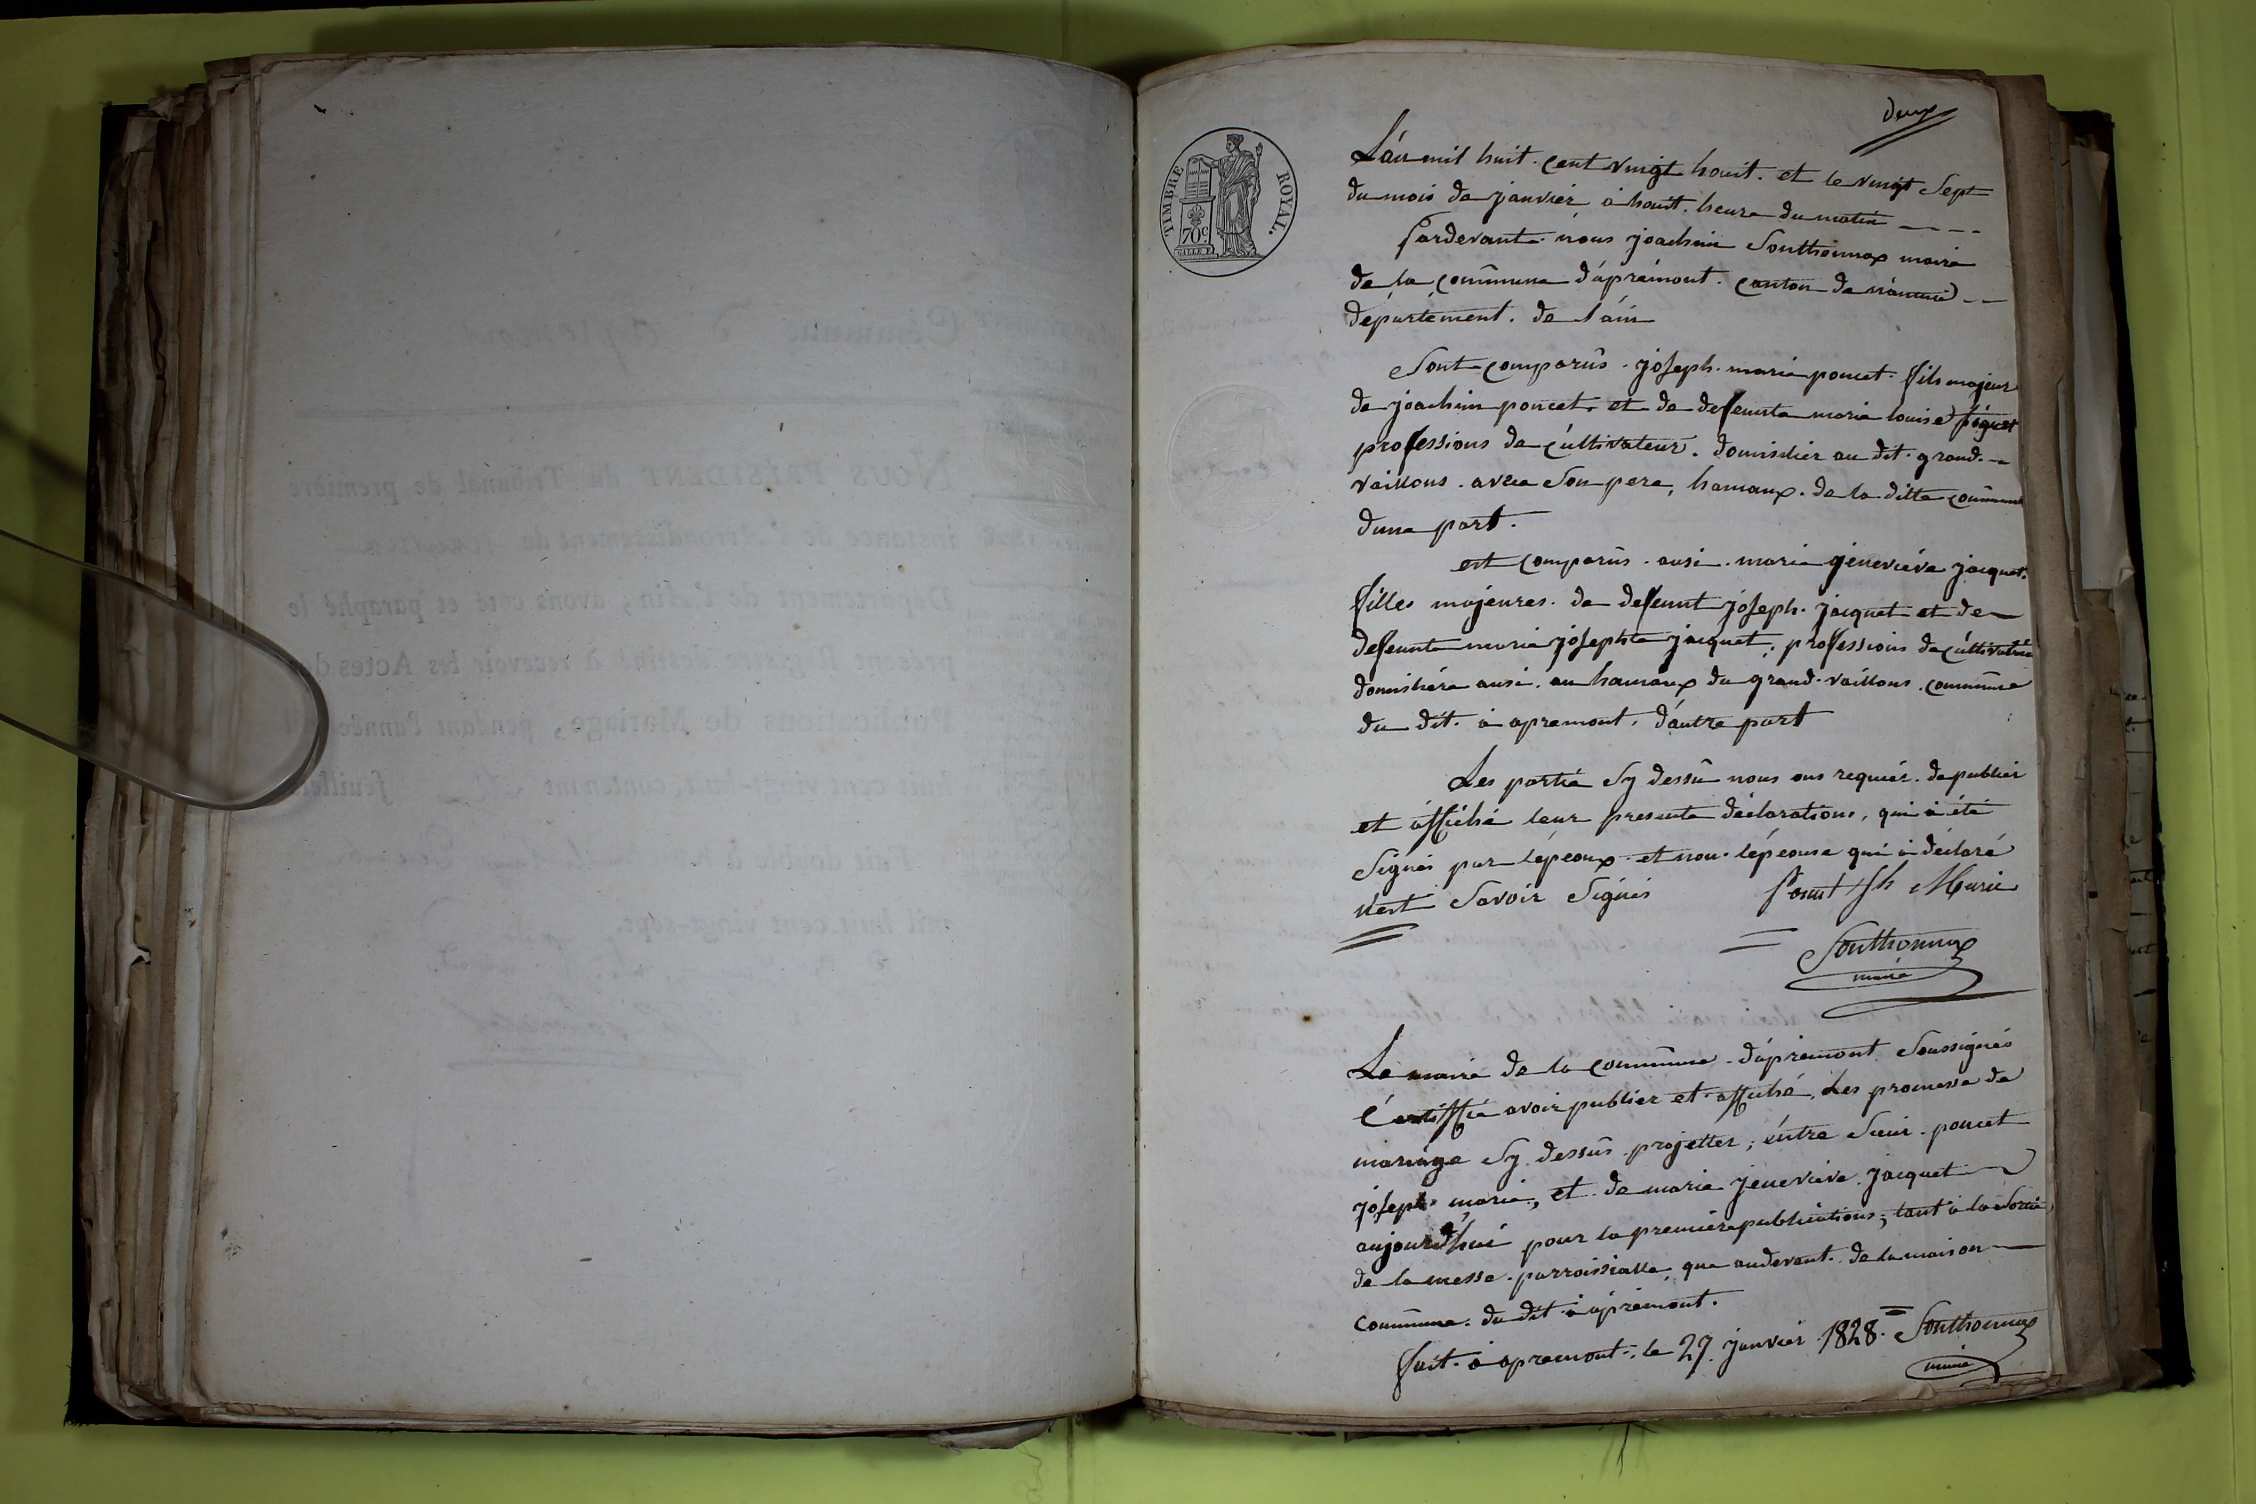 deux
TIMBRE ROYAL.
70c
L'an mil huit cent vingt houit. et le vingt Sept
du mois de janvier, à houit. heure du matin ----
Pardevante nous joachim Sonthonnax maire
de la commune d'apremont. canton de nantua --
département. de l'ain
Sont comparûs. joseph. marie poncet. fils majeur
de joachim poncet. et de defeunte marie louise
professions de cultivateur. domisilier au dit. grand. -
vaillons. avec son pere, hamaux. de la ditte commune
dune part.
est comparûs. ausi. marie jéneviéve jacquet.
filles majeures. de defeunt joseph. jacquet et de
defeunte marie josephte jacquet, professions de cultivatrice
domisliére ausi. au hamaux du grand-vaillons. commune
du dit. à apremont. d'autre part
Les partie sy dessû nous ons requiér. de publier
et affiché leur presente déclarations, qui à été
Signés par lépeoux. et non. lépeouse qui à déclaré
n'est Savoir Signés Poncet Jh Marie
Sonthonnax
maire
Le maire de la commune d'apremont Soussignés
Certiffie avoir publier et affiché. Les promesse de
mariage sy dessûs projetter; éntre sieur. poncet
joseph marie, et. de marie jeneviéve. jacquet
aujourd'hui pour la premiére publications, tant à la Sortie
de la messe. parroissialle, que audevant. de la maison
commune. du dit à apremont.
fait. à apremont. le 27 janvier 1828. = Sonthonnax
maire